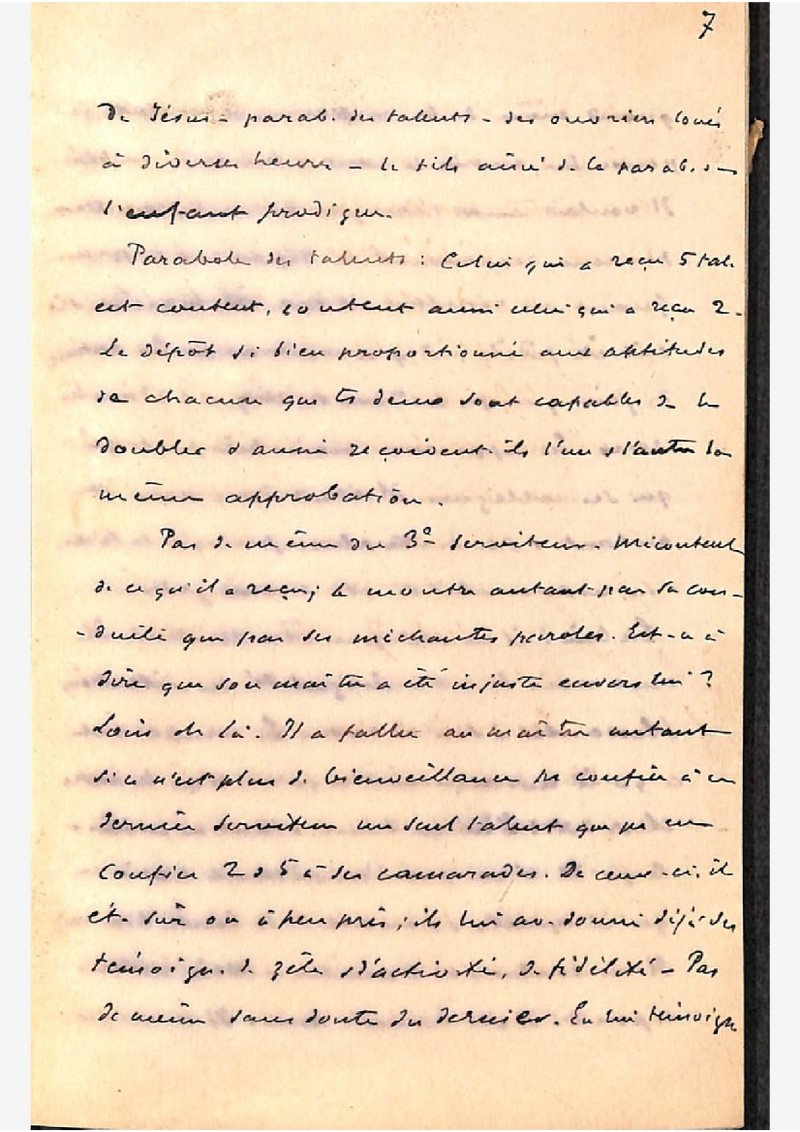 7
de Jésus – parab. des talents – des ouvriers loués
à diverses heures – le fils aîné de la parab. de
l'enfant prodigue.
Parabole des talents : Celui qui a reçu 5 tal.
est content, content aussi celui qui a reçu 2.
Le dépôt si bien proportionné aux aptitudes
de chacun que ts deux sont capables de le
doubler & aussi reçoivent-ils l'un & l'autre la
même approbation.
Pas de même du 3e serviteur. Mécontent
de ce qu'il a reçu, il le montre autant par sa con-
-duite que par ses méchantes paroles. Est-ce à
dire que son maître a été injuste envers lui ?
Loin de là. Il a fallu au maître autant
si ce n'est plus de bienveillance pr confier à ce
dernier serviteur un seul talent que pr en
confier 2 & 5 à ses camarades. De ceux-ci, il
ét. sûr ou à peu près ; ils lui av. donné déjà des
témoign. de zèle & d'activité, de fidélité – Pas
de même sans doute du dernier. En lui témoign